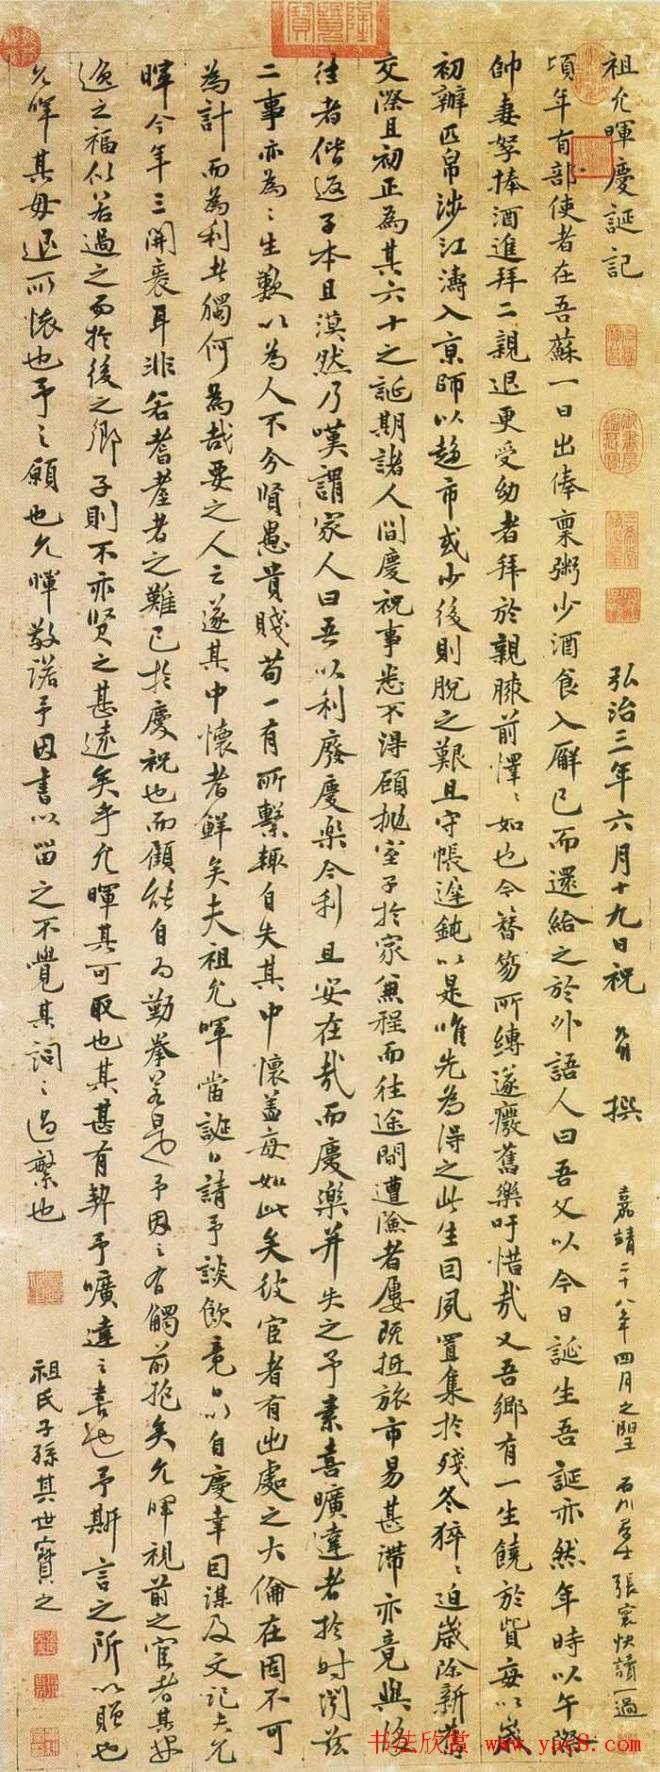 祖允暉慶誕記
弘治三年六月十九日祝 允明 撰
嘉靖二十八年四月之望 石川居士張寰快讀一過
頃年有部使者在吾蘇一日出俸禀粥少酒食入廨已而還給之於外語人曰吾父以今日誕生吾誕亦然年時以午際
帥妻孥捧酒進拜二親退更受幼者拜於親膝前懌〻如也今簪笏所縛遂癈舊樂吁惜哉又吾鄉有一生饒於貲每以歲
初辦匹帛涉江濤入京師以趍市或少後則脫之艱且守帳遲鈍以是唯先為得之此生因夙置集於殘冬猝〻迫歲除新舊
交際且初正為其六十之誕期諸人間慶祝事悉不得顧拋室子於家兼程而往途間遭險者屢既抵旅市易甚滯亦竟與後
往者偕返子本且漠然乃嘆謂家人曰吾以利廢慶樂今利且安在哉而慶樂并失之予素喜曠達者於时閱茲
二事亦為〻生歎以為人不分賢愚貴賤苟一有所繫輙自失其中懷盖每如此矣彼宦者有出處之大倫在固不可
為計而為利者獨何為哉要之人之遂其中懷者鮮矣夫祖允暉當誕日請予談飲竟日以自慶幸因謀及文記夫允
暉今年三開袠耳非若耆耋者之難已於慶祝也而顧能自為勤拳若是予因之有觸前抱矣允暉視前之宦者其安
逸之福似若過之而於後之鄉子則不亦賢之甚遠矣乎允暉其可取也其甚有契予曠達之喜也予斯言之所以贈也
允暉其毋退所懷也予之願也允暉敬諾予因書以留之不覺其詞之過繁也
祖氏子孫其世寶之
书法欣赏 www.yac8.com